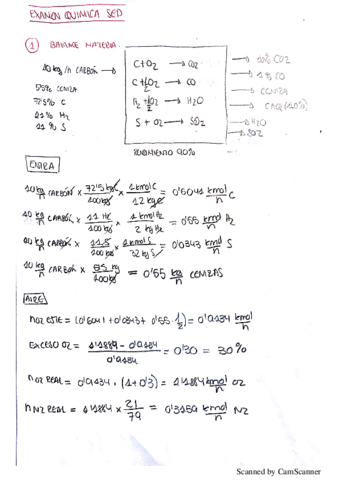 EXAMEN QUIMICA SED
1 BALANCE MATERIA
10 kg/h CARBÓN →
C + O2 → CO2
C + O2/2 → CO
H2 + O2/2 → H2O
S + O2 → SO2
10% CO2
1% CO
CENIZA
H2O
SO2
5'5% CENIZA
72'5% C
11% H2
11% S
RENDIMIENTO 90%
ENTRA
10 kg/h CARBÓN × 72'5 kg C/100 kg × 1 kmol C/12 kg C = 0'6041 kmol/h C
10 kg/h CARBÓN × 11 H2/100 kg × 1 kmol H2/2 kg H2 = 0'55 kmol/h H2
10 kg/h CARBÓN × 11 S/100 kg × 1 kmol S/32 kg S = 0'0343 kmol/h S
10 kg/h CARBÓN × 5'5 kg/100 kg = 0'55 kg/h CENIZAS
AIRE
nO2 ESTE = (0'6041 + 0'0343 + 0'55 · 1/2) = 0'9134 kmol/h
EXCESO O2 = (1'1884 - 0'9134)/0'9134 = 0'30 = 30%
nO2 REAL = 0'9134 · (1 + 0'3) = 1'1884 kmol O2
nN2 REAL = 1'1884 × 21/79 = 0'3159 kmol/h N2
Scanned by CamScanner